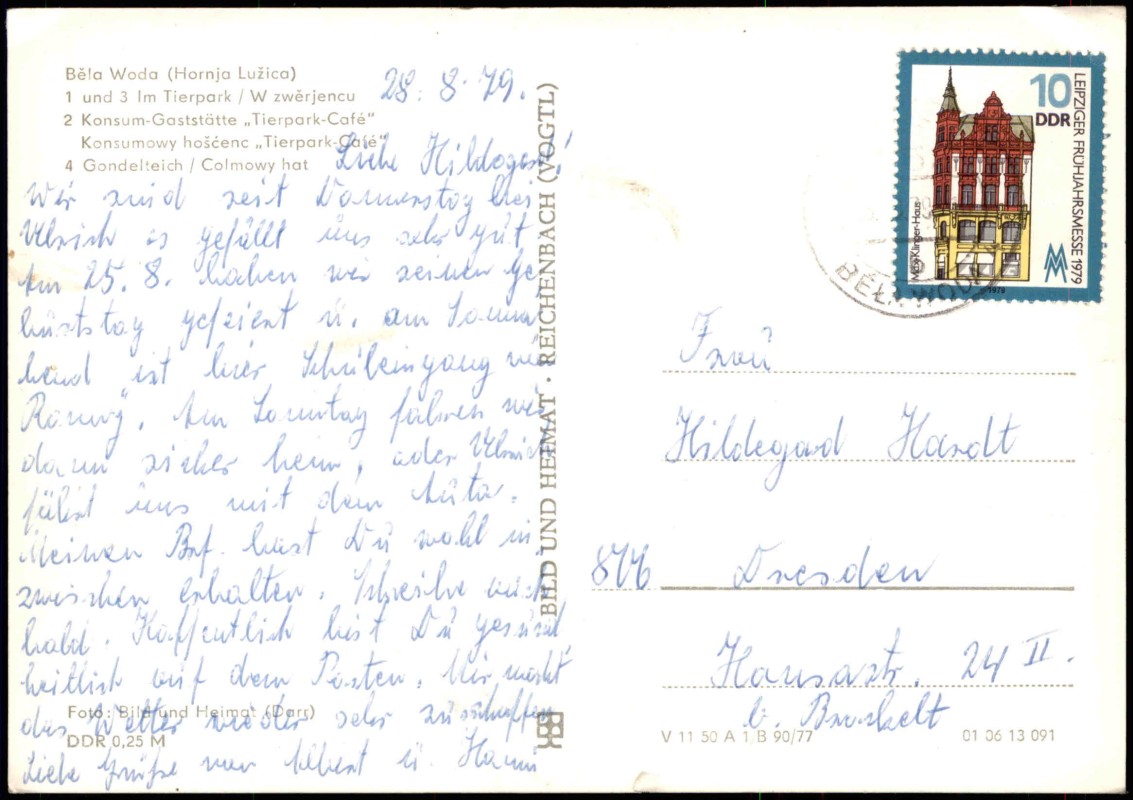 Běla Woda (Hornja Lužica)
1 und 3 Im Tierpark / W zwěrjencu
2 Konsum-Gaststätte „Tierpark-Café"
Konsumowy hosćenc „Tierpark-Café"
4 Gondelteich / Colmowy hat
28. 8. 79.
Liebe Hildegard!
Wir sind seit Donnerstag bei
Ulrich es gefällt uns sehr gut
Am 25. 8. haben wir seinen Ge
burtstag gefeiert u. am Sonna
bend ist hier Schuleingang
Am Sonntag fahren wir
dann sicher heim, oder Ulrich
fährt uns mit dem Auto.
Meinen Brf. hast Du wohl in,
zwischen erhalten. Schreibe auch
bald. Hoffentlich bist Du gesund,
heitlich auf dem Posten. Mir macht
das Wetter wieder sehr zuschaffen
Liebe Grüße von Albert u. Hanni
Foto: Bild und Heimat (Darr)
DDR 0,25 M
BILD UND HEIMAT · REICHENBACH (VOGTL)
10
DDR
LEIPZIGER FRÜHJAHRSMESSE 1979
Max-Klinger-Haus
1979
BĚŁA WODA
Frau
Hildegard Hardt
806 Dresden
Hansastr. 24 II.
b.
V 11 50 A 1 B 90/77
01 06 13 091